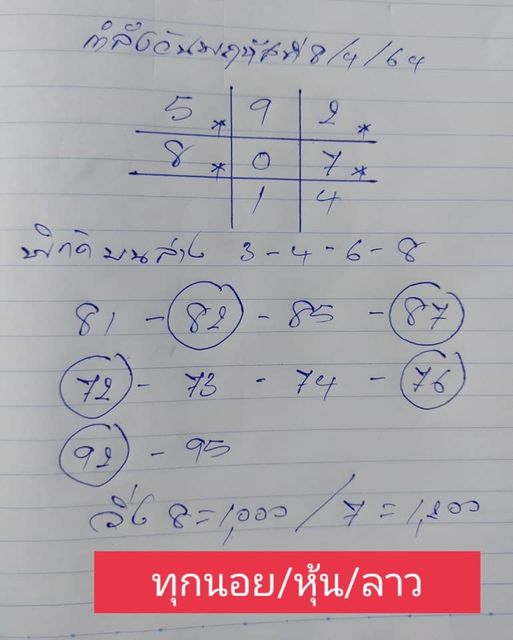 กำลังวันพฤหัสที่ 8/4/64
5* 9 2*
8* 0 7*
1 4
พิกัด บนล่าง 3-4-6-8
81 - 82 - 85 - 87
72 - 73 - 74 - 76
92 - 95
วิ่ง 8=1,000 / 7=1,200
ทุกนอย/หุ้น/ลาว